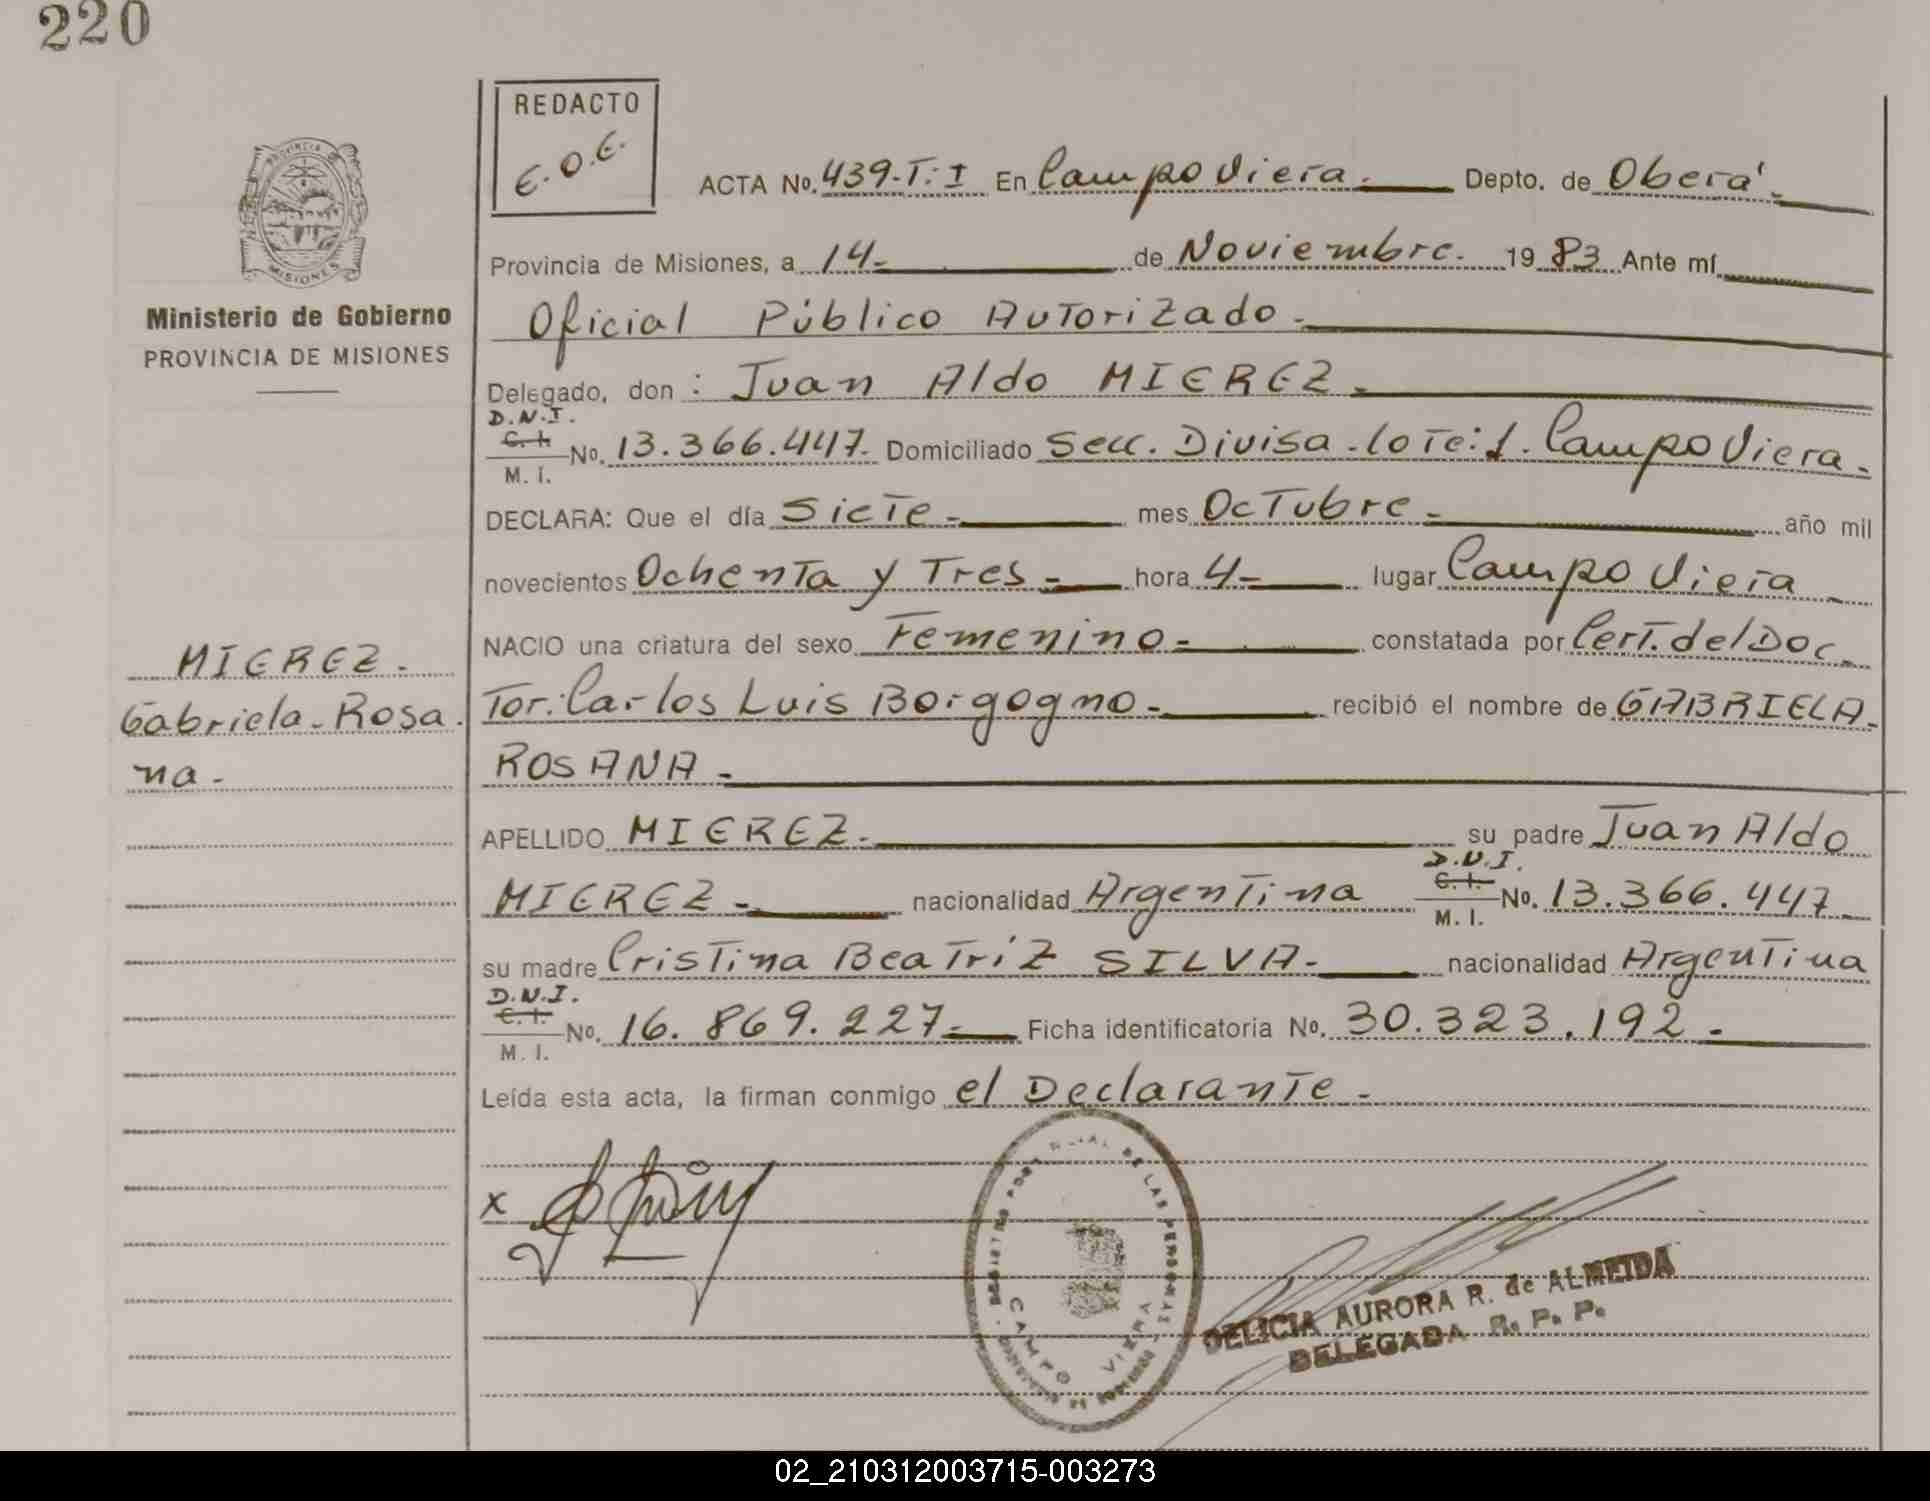 220
REDACTO
E.O.E.
ACTA No. 439-T: I En Campo Viera. Depto. de Oberá.
Provincia de Misiones, a 14- de Noviembre. 1983 Ante mí
Oficial Público Autorizado.
Delegado, don : Juan Aldo MIEREZ.
D.N.I.
C. I.
M. I.
No. 13.366.447. Domiciliado Secc. Divisa. lote: 1. Campo Viera.
DECLARA: Que el día Siete - mes Octubre - año mil
novecientos Ochenta y Tres - hora 4- lugar Campo Viera
NACIO una criatura del sexo Femenino - constatada por Cert. del Doc
Tor: Carlos Luis Borgogno - recibió el nombre de GABRIELA
ROSANA -
APELLIDO MIEREZ. su padre Juan Aldo
MIEREZ - nacionalidad Argentina
D.N.I.
C. I.
M. I.
No. 13.366.447
su madre Cristina Beatriz SILVA - nacionalidad Argentina
D.N.I.
C. I.
M. I.
No. 16.869.227- Ficha identificatoria No. 30.323.192 -
Leída esta acta, la firman conmigo el Declarante -
x
CAMPO VIERA
DELICIA AURORA R. de ALMEIDA
DELEGADA R. P. P.
PROVINCIA DE
MISIONES
Ministerio de Gobierno
PROVINCIA DE MISIONES
MIEREZ.
Gabriela-Rosa
na-
02_210312003715-003273